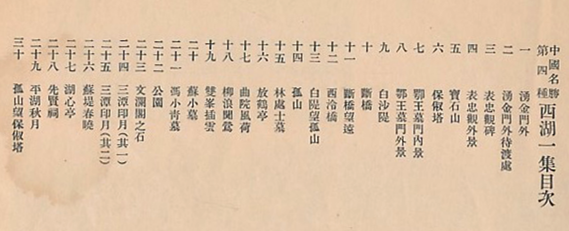 中國名勝第四種 西湖一集目次
一 湧金門外
二 湧金門外待渡處
三 表忠觀碑
四 表忠觀外景
五 寶石山
六 保俶塔
七 鄂王墓門內景
八 鄂王墓門外景
九 白沙隄
十 斷橋
十一 斷橋望遠
十二 西泠橋
十三 白隄望孤山
十四 孤山
十五 林處士墓
十六 放鶴亭
十七 曲院風荷
十八 柳浪聞鶯
十九 雙峯插雲
二十 蘇小墓
二十一 馮小青墓
二十二 公園
二十三 文瀾閣之石
二十四 三潭印月(其一)
二十五 三潭印月(其二)
二十六 蘇堤春曉
二十七 湖心亭
二十八 先賢祠
二十九 平湖秋月
三十 孤山望保俶塔